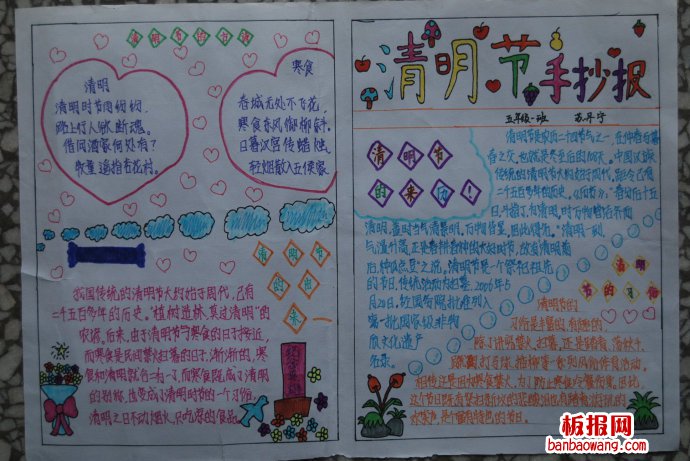 清明节古诗
清明
清明时节雨纷纷,
路上行人欲断魂。
借问酒家何处有?
牧童遥指杏花村。
寒食
春城无处不飞花,
寒食东风御柳斜。
日暮汉宫传蜡烛,
轻烟散入五侯家。
清明节
的点
来一
我国传统的清明节大约始于周代,已有
二千五百多年的历史。"植树造林,莫过清明"的
农谚。后来,由于清明节与寒食的日子接近,
而寒食是民间禁火扫墓的日子,渐渐的,寒
食和清明就合二为一了,而寒食既成了清明
的别称,也变成了清明时节的一个习俗,
清明之日不动烟火,只吃凉的食品。
清明节手抄报
五年级一班
清明节
的来历!
清明节是农历二十四节气之一,在仲春与暮
春之交,也就是冬至后的108天。中国汉族
传统的清明节大约始于周代,距今已有
二千五百多年的历史。
清明,
清明一到,
气温升高,正是春耕春种的大好时节,故有清明前
后,种瓜点豆之说。清明节是一个祭祀祖先
的节日,传统活动为扫墓。2006年5
月20日,经国务院批准列入
第一批国家级非物
质文化遗产
名录。
清明
节的习俗
清明节的
习俗是丰富的有趣的,
除了讲究禁火、扫墓,还有踏青、荡秋千、
蹴鞠、打马球、插柳等一系列风俗体育活动。
相传这是因为寒食节要禁火,为了防止寒食冷餐伤身,因此,
这个节日既有祭扫新坟的悲酸泪,也有踏青游玩的
欢笑声,是个富有特色的节日。
板报网
banbaowang.com